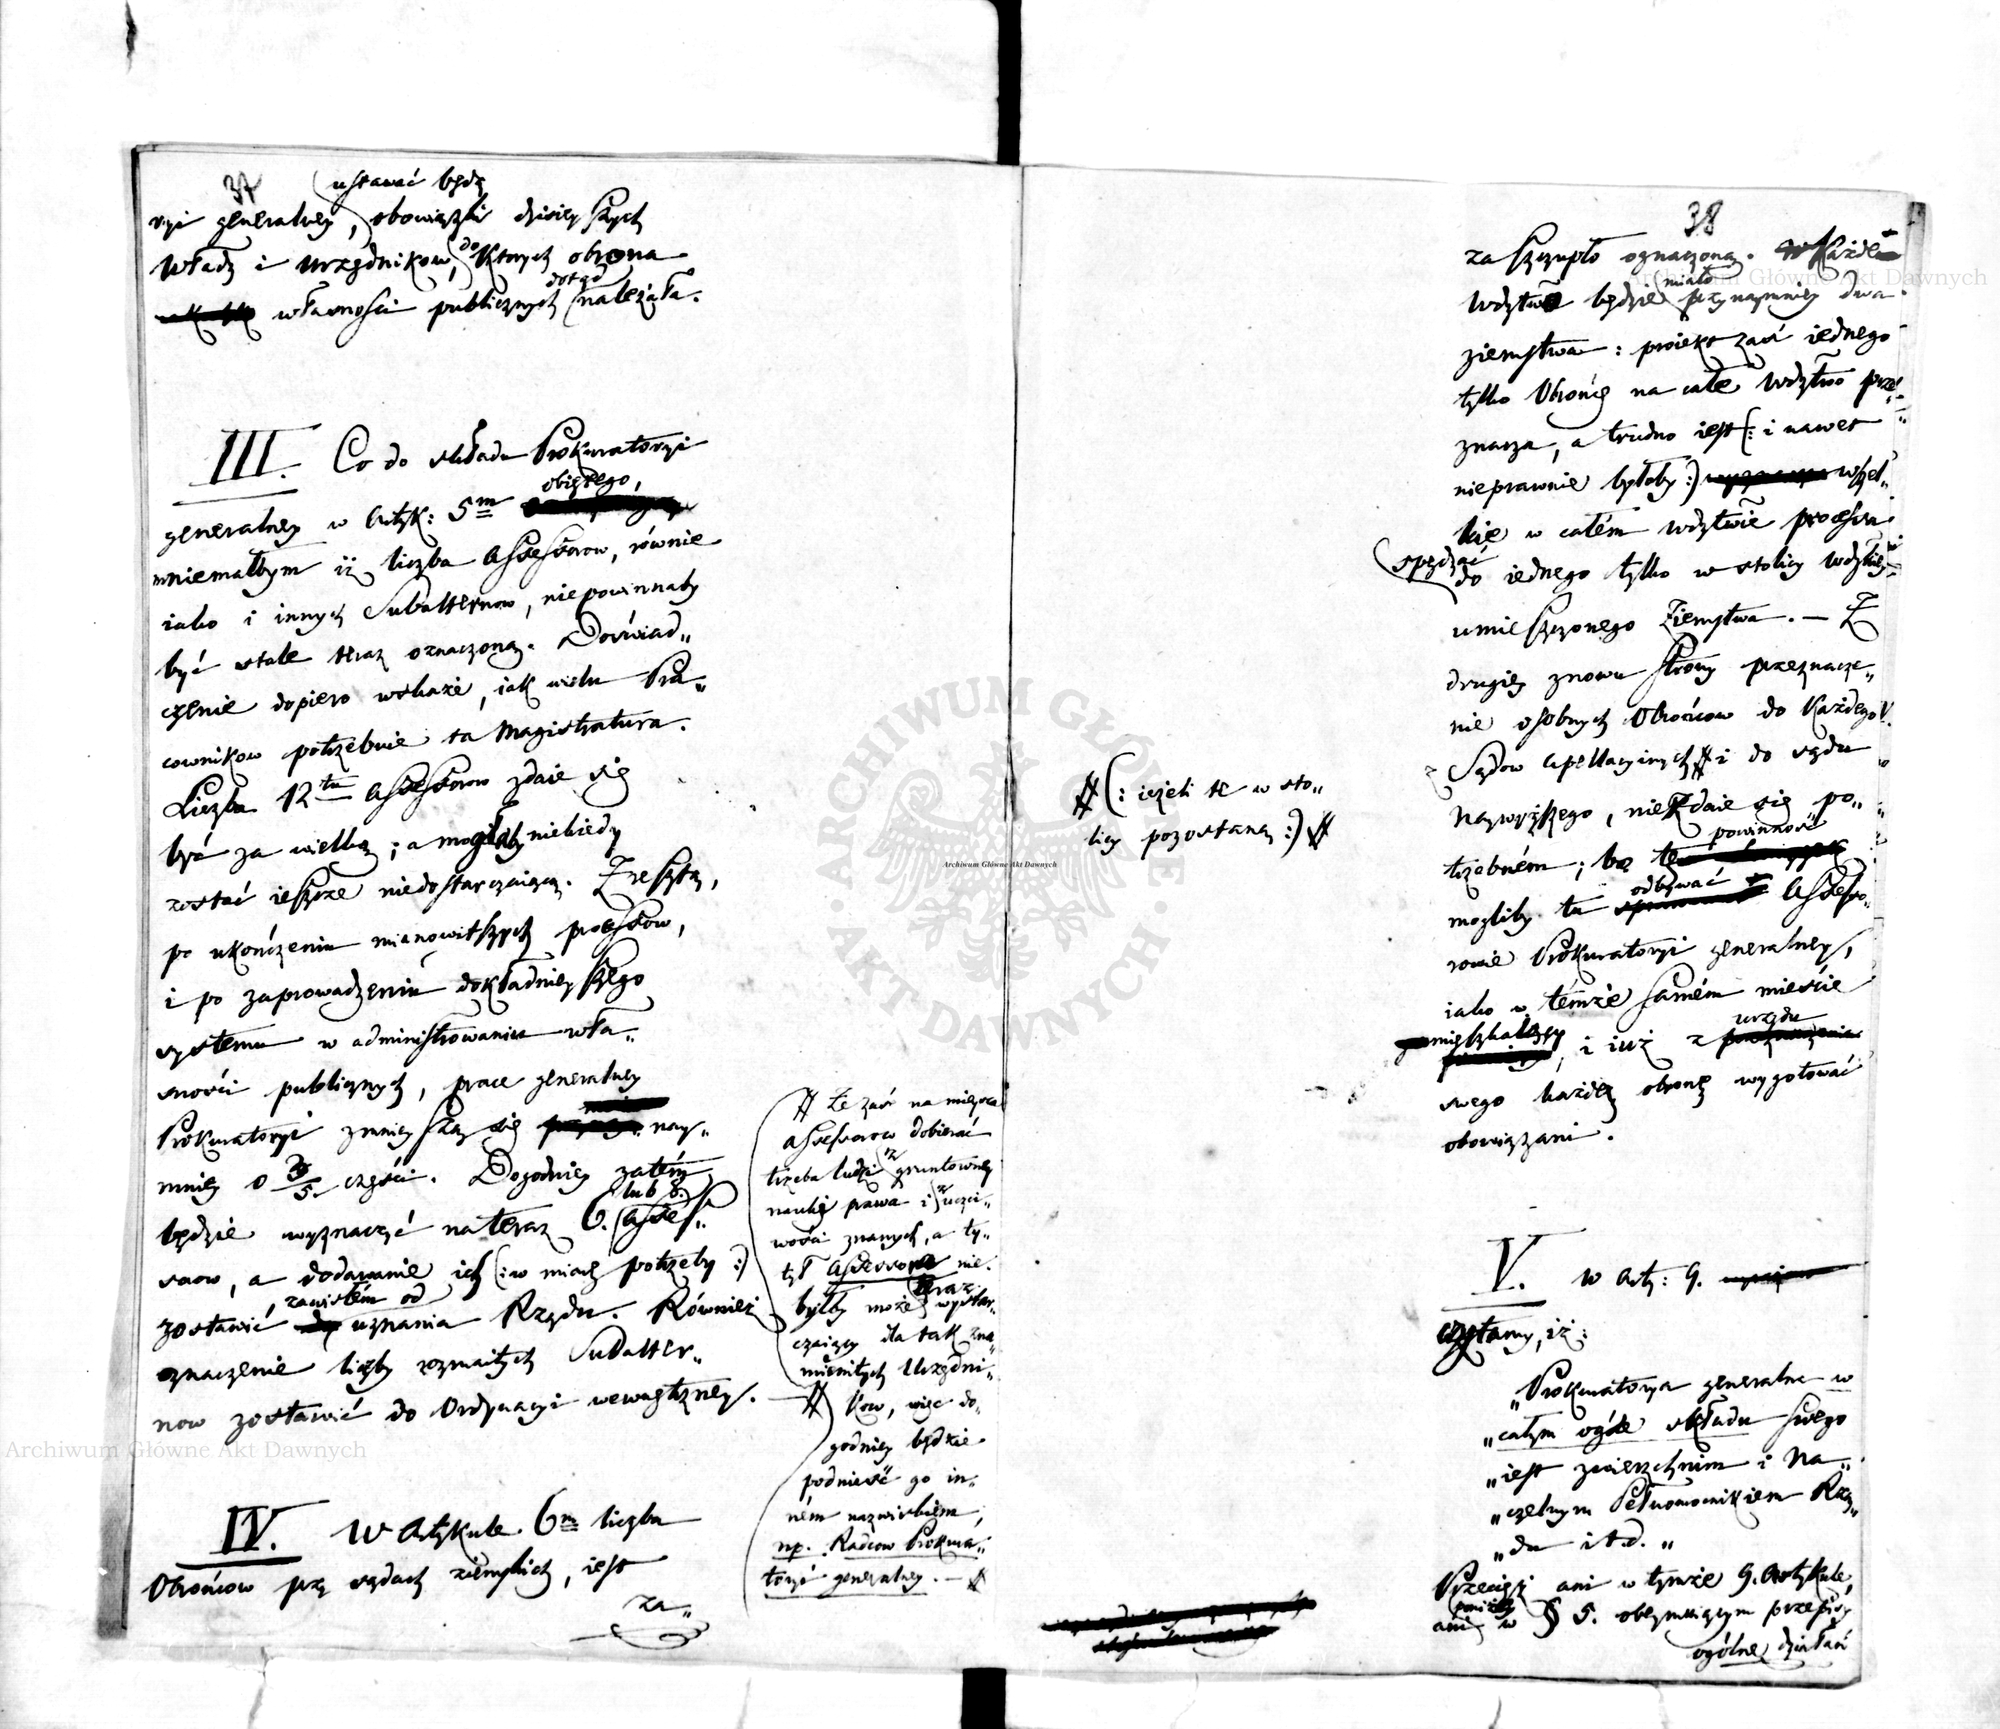 37
ustawać będą
ryi generalney, obowiązki dzisieyszych
Władz i urzędnikow, do ktorych obrona
dotąd
własności publicznych należała.
III. Co do składu Prokuratoryi
obiętego,
generalney w Artyk: 5m
mniemałbym iż liczba Assessorow, równie
iako i innych Subalternow, niepowinnaby
być stale teraz oznaczoną. Doświad„
czenie dopiero wskaże, iak wielu Pra„
cownikow potrzebuie ta Magistratura.
Liczba 12tu Assessorow zdaie się
być za wielką; a mogłaby niekiedy
zostać ieszcze niedostarczaiącą. Zresztą,
po ukończeniu mianowitszych processow,
i po zaprowadzeniu dokładnieyszego
systemu w administrowaniu wła„
sności publicznych, prace generalney
Prokuratoryi zmnieyszą się nay„
mniey o 3/5 części. Dogodniey zatém
lub 8.
będzie wyznaczyć na teraz 6. Asses„
sorow, a dodawanie ich (: w miarę potrzeby :)
zawisłém od
zostawić, uznania Rządu. Również
oznaczenie liczby rozmaitych Subalter„
now zostawić do Ordynacyi wewnętrzney.
IV. W Artykule 6m liczba
Obrońcow przy sądach ziemskich, iest
za„
# Że zaś na mieysca
Assessorow dobierać
trzeba ludzi z gruntowney
nauki prawa i z uczci„
wości znanych, a ty„
tył Assessora nie
teraz
byłby może wystar„
czaiący dla tak zna„
mienitych Urzędni„
# kow, więc do„
godniey będzie
podnieść go in„
ném nazwiskiem,
np. Radcow Prokura„
toryi generalney. — #
38
za szczupło oznaczoną. Każde
miało
Wdztwo będzie przynaymniey dwa
ziemstwa: proiekt zaś iednego
tylko Obrońcę na całe Wdztwo prze„
znacza, a trudno iest (: i nawet
nieprawnie byłoby :) wszel„
kie w całém wdztwie processa
spędzać
do iednego tylko w stolicy wdzkiey
umieszczonego Ziemstwa. — Z
drugiey znowu strony przeznacze„
nie osobnych Obrońcow do każdego
z Sądow apellacyinych # i do sądu
Naywyższego, nie zdaie się po„
powinność
trzebném; bo tę
odbywać
mogliby tu Assesso„
rowie Prokuratoryi generalney,
iako w témże samém mieście
mieszkaiący, i iuż z urzędu
swego każdą obronę wygotować
obowiązani.
# (: ieżeli te w sto„
licy pozostaną :) #
V. W Art: 9.
czytamy, iż:
„Prokuratorya generalna w
„całym ogóle składu swego
„iest zwierzchnim i Na„
„czelnym Pełnomocnikiem Rzą„
„du i t.d. „
Przecięż ani w tymże 9. Artykule,
poniżey
ani w § 5. obeymuiącym przepisy
ogólne działań